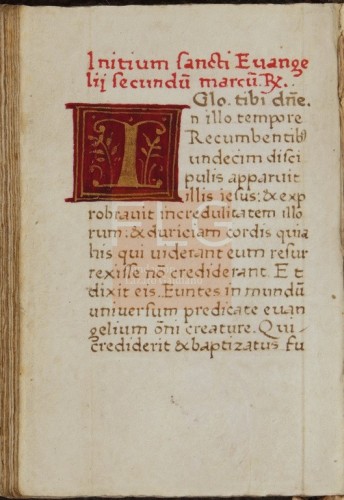 Initium sancti Euange
lij secundū marcū. ℞.
Glo. tibi dn̄e.
In illo tempore
Recumbentib)
undecim disci
pulis apparuit
illis iesus: & exp
robrauit incredulitatem illo
rum: & duriciam cordis quia
his qui uiderant eum resur
rexisse nō crediderant. Et
dixit eis. Euntes in mundū
uniuersum predicate euan
gelium ōni creature. Qui
crediderit & baptizatus fu